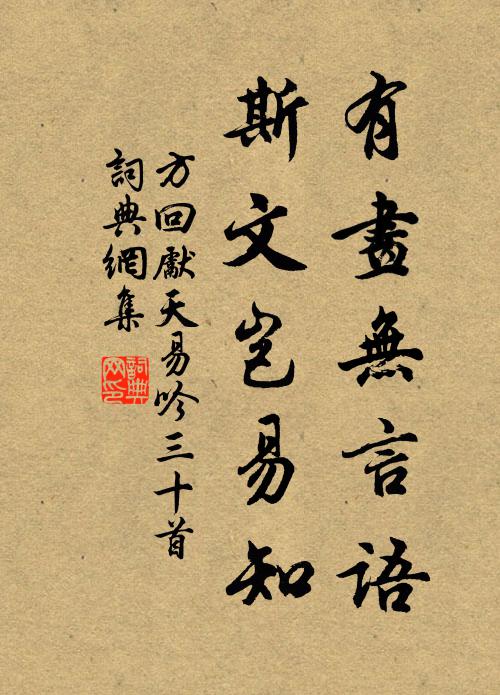 有畫無言語
斯文豈易知
方回獻天易吟三十首
詞典網集
詞典网印